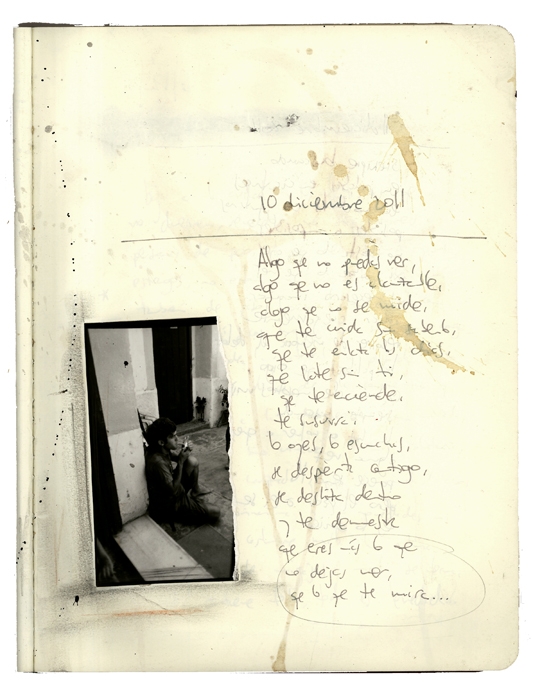 10 diciembre 2011
Algo que no puedes ver,
algo que no es
algo que no se mide,
que te cuida sin
que te los días,
que late sin ti,
que te enciende,
te susurra.
lo oyes, lo escuchas,
se despierta contigo,
se desliza dentro
y te demuestra
que eres más lo que
no dejas ver,
que lo que te mira...